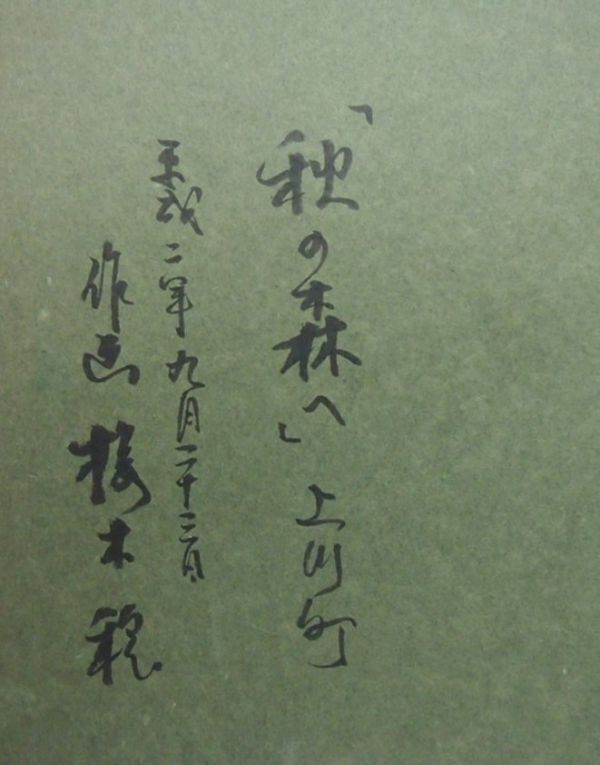 「秋の森へ」 上川町
平成二年九月二十三日
作画